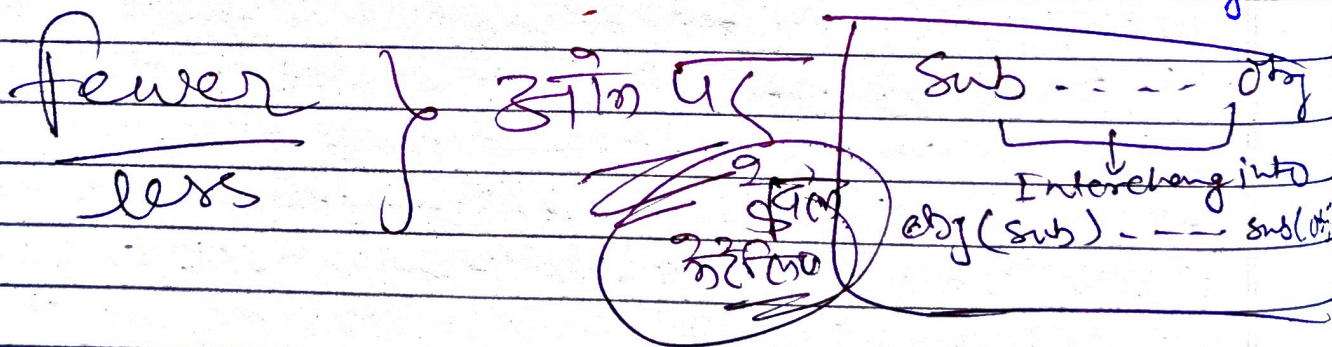 fewer
less
होने पर
Sub ----- obj
Interchang into
obj (sub) ---- sub (obj